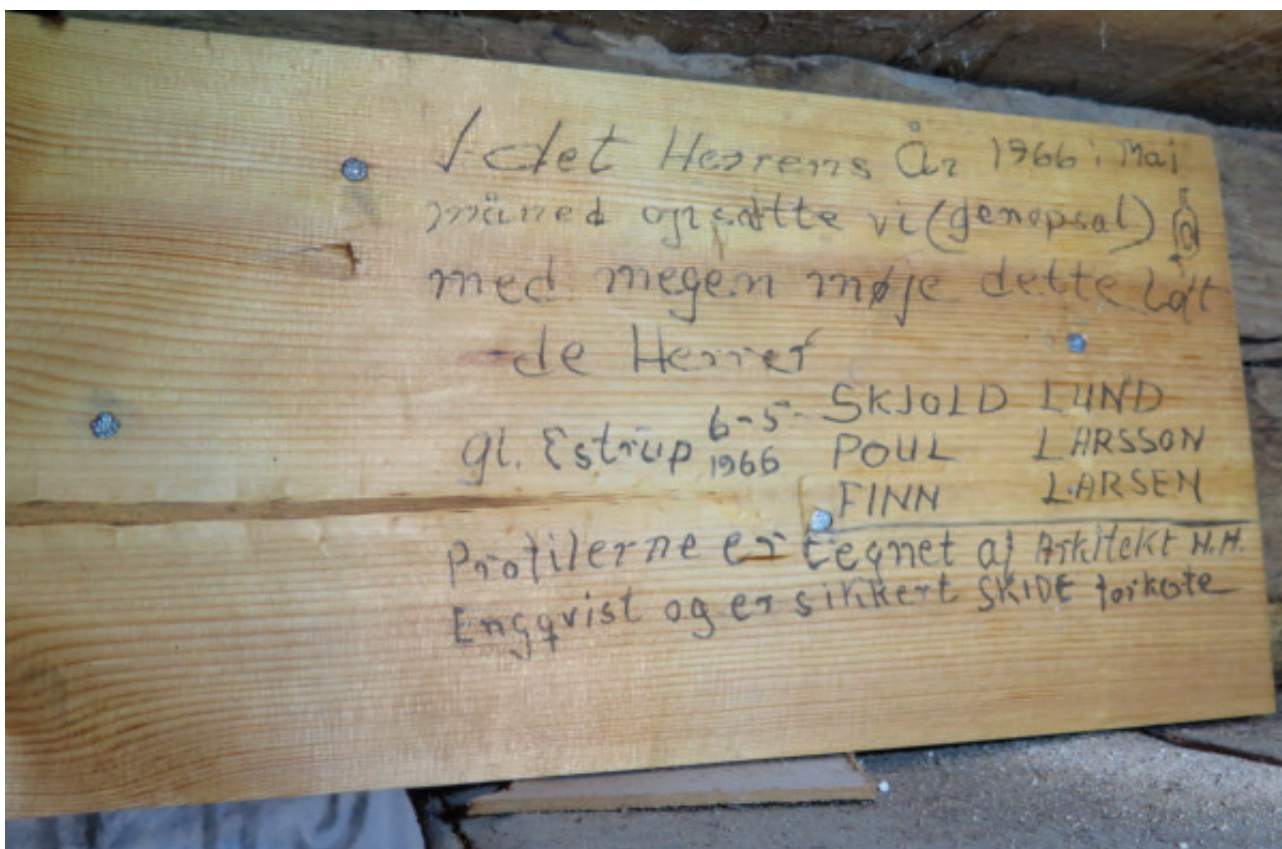 I det Herrens År 1966 i Maj
måned opsatte vi (genopsat)
med megen møje dette Loft
de Herrer
SKJOLD LUND
gl. Estrup 6-5- 1966 POUL LARSSON
FINN LARSEN
Profilerne er tegnet af Arkitekt H.H.
Engqvist og er sikkert SKIDE forkerte